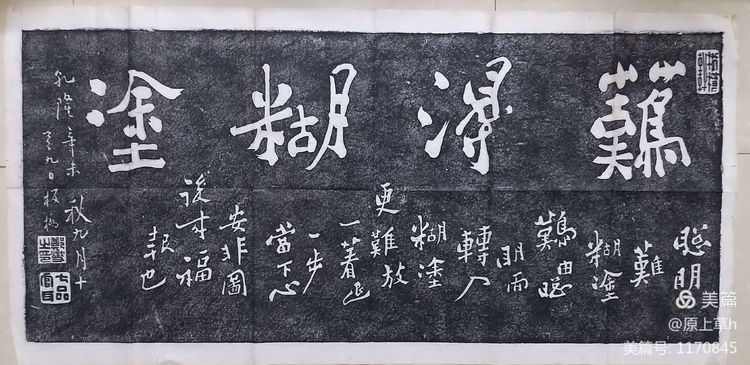 難得糊塗
聰明
難
糊塗
難由聰
明而
轉入
糊塗
更難放
一著退
一步
當下心
安非圖
後來福
報也
乾隆辛未
秋九月十
有九日板橋
鄭燮之印
七品官耳
美篇
@原上草h
美篇号: 1170845